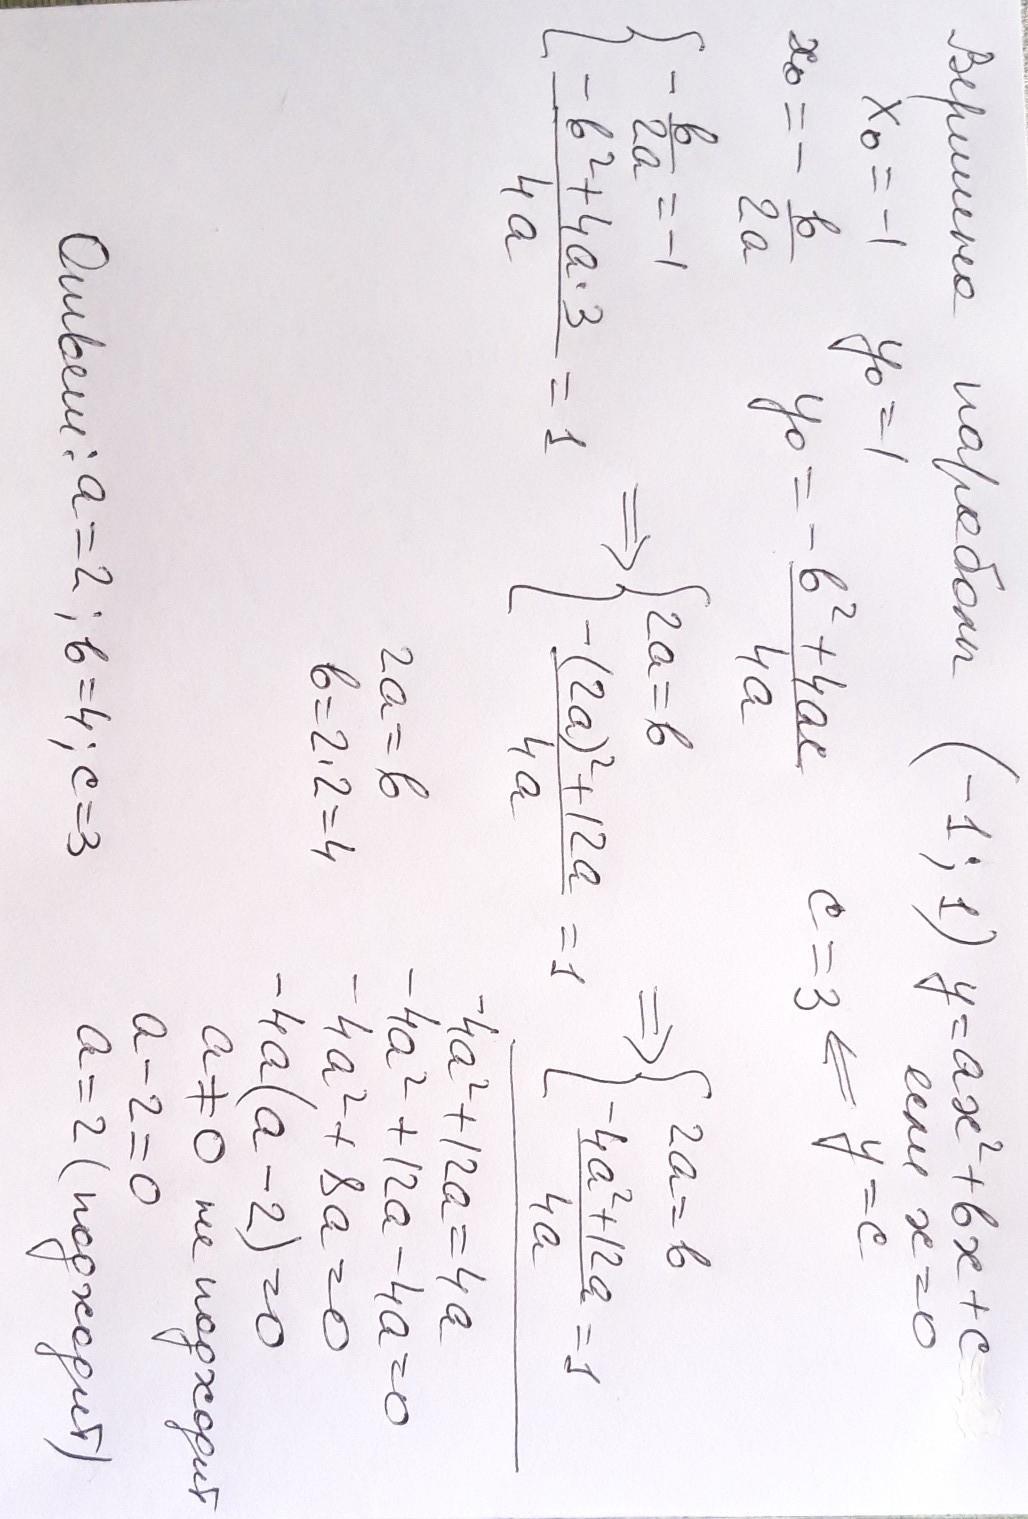 Вершина параболы (-1; 1) y=ax²+bx+c
x₀=-1 y₀=1 если x=0
x₀=-b/2a y₀=-b²+4ac/4a c=3 ⇐ y=c
{-b/2a=-1 ⇒ {2a=b ⇒ {2a=b
{-b²+4a·3/4a=1 {-(2a)²+12a/4a=1 {-4a²+12a/4a=1
-4a²+12a=4a
2a=b -4a²+12a-4a=0
b=2·2=4 -4a²+8a=0
-4a(a-2)=0
a≠0 не подходит
a-2=0
a=2 (подходит)
Ответ: a=2; b=4; c=3